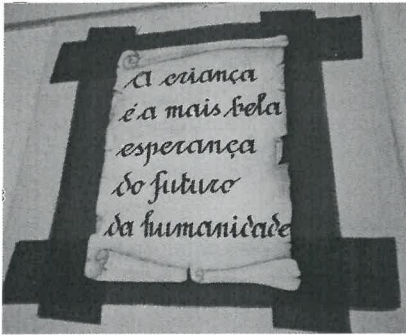 A criança
é a mais bela
esperança
do futuro
da humanidade